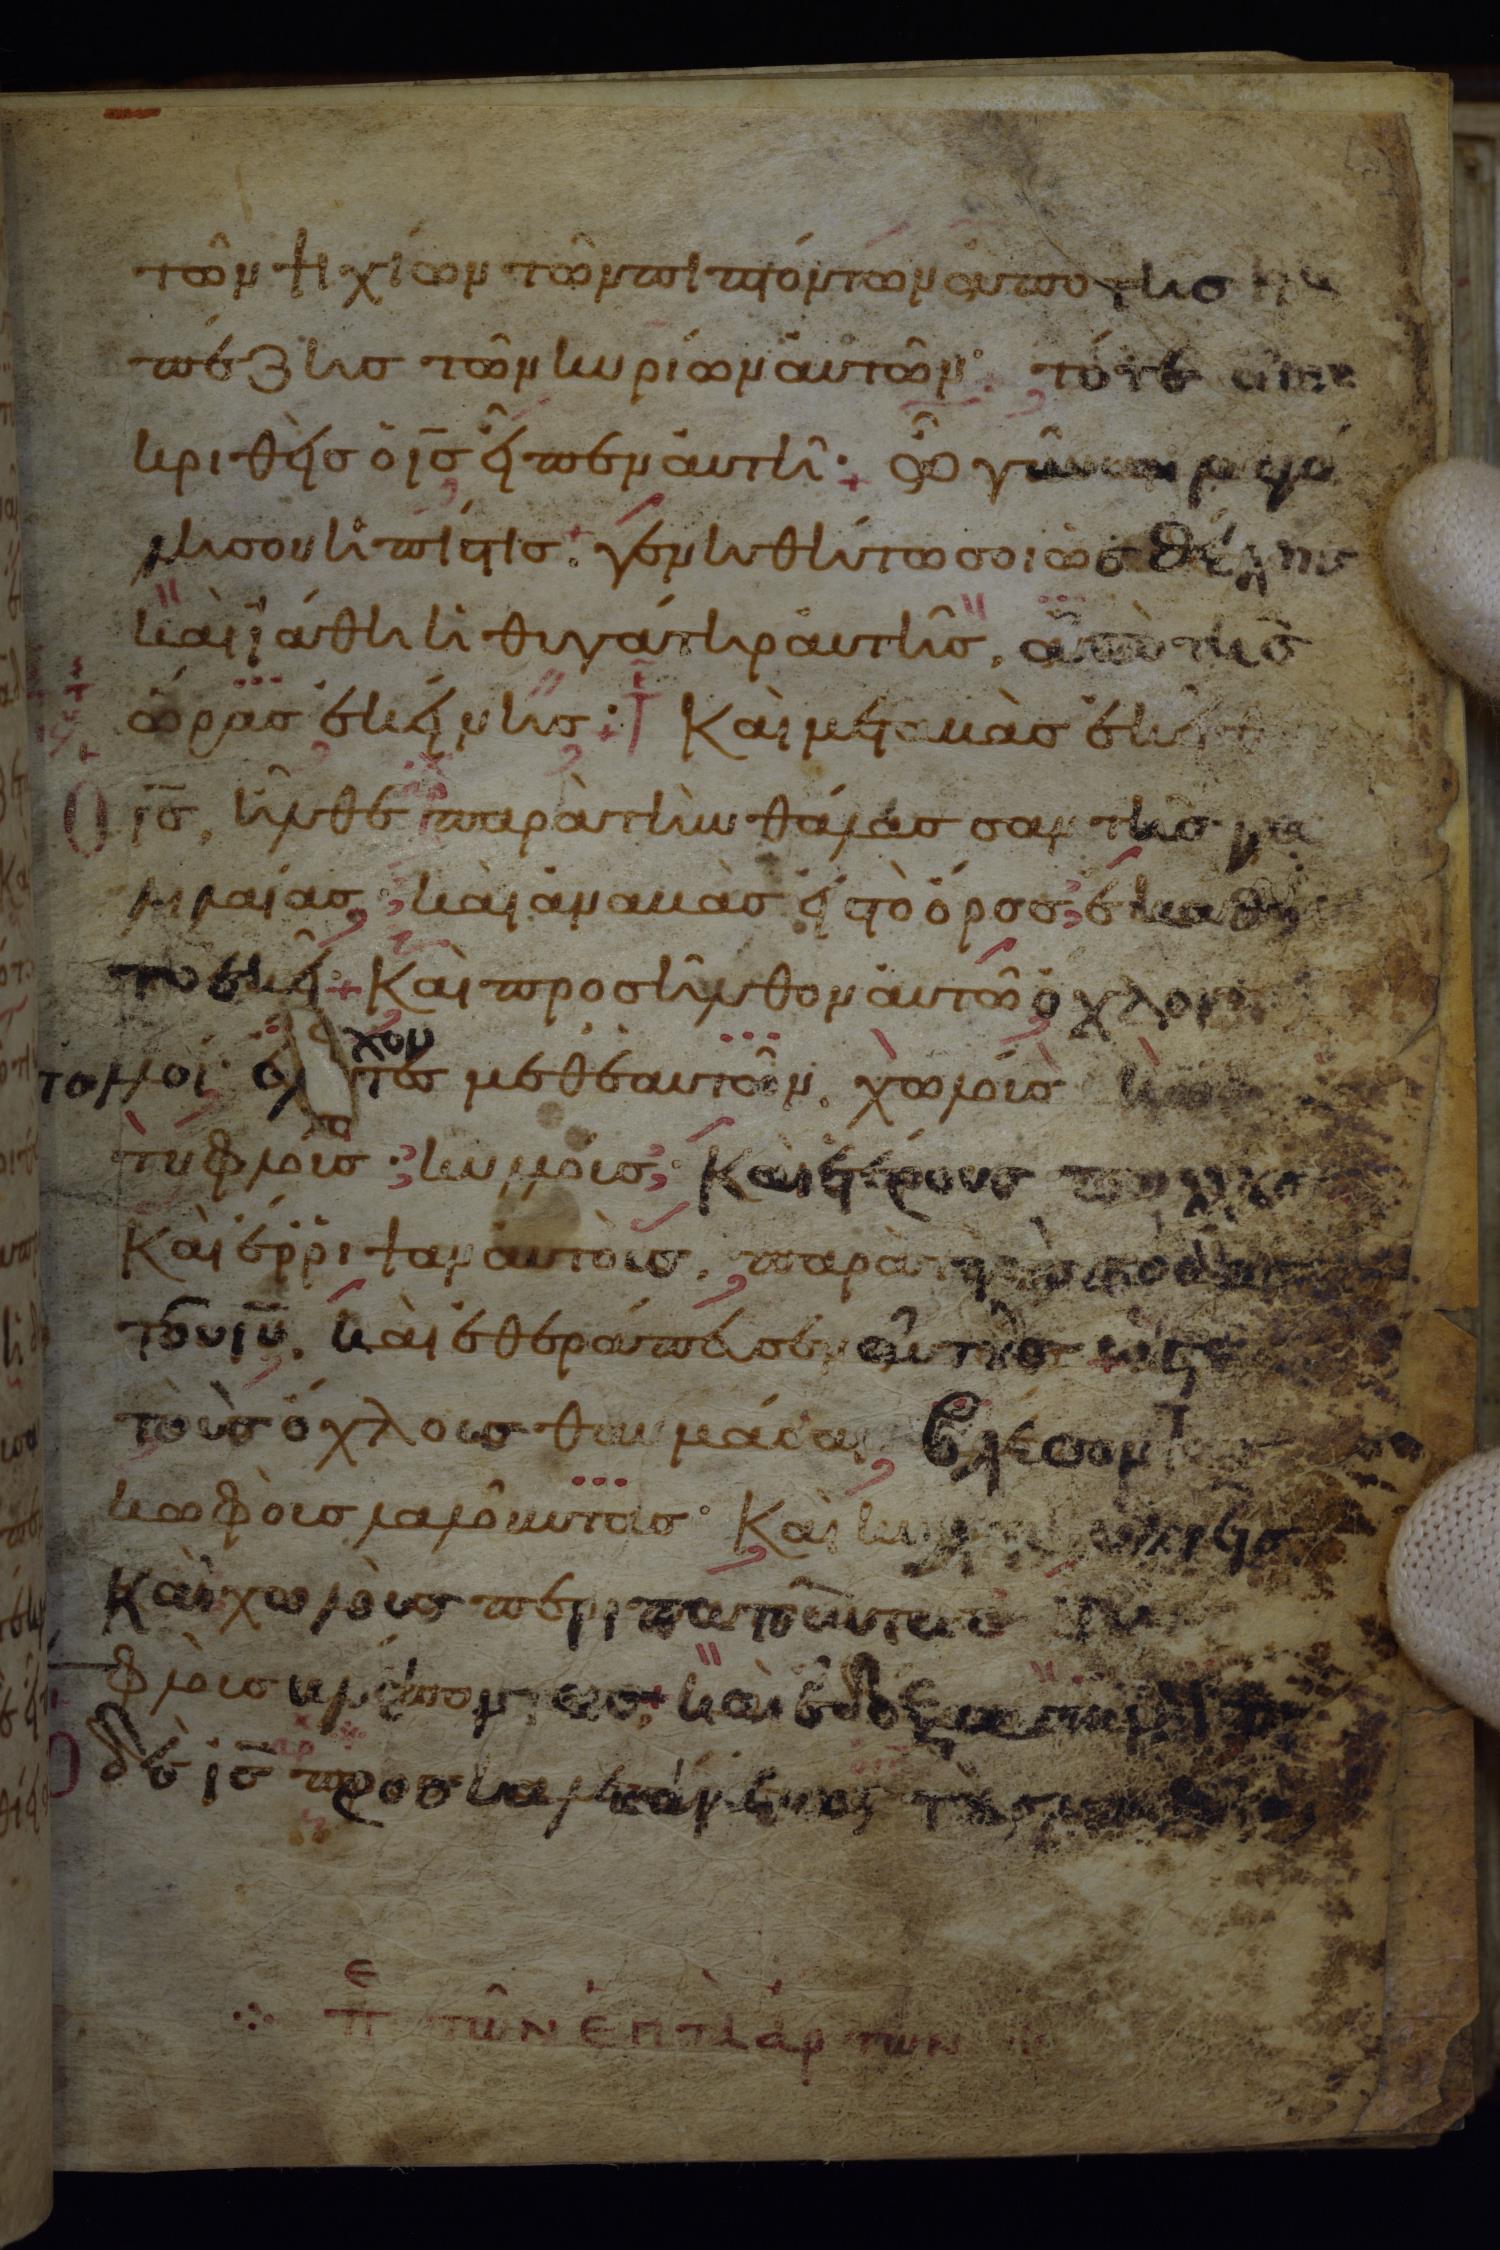 τῶν ψιχίων τῶν πιπτόντων ἀπὸ τῆσ
πέζησ τῶν κυρίων αὐτῶν· τότε ἀπο
κριθεὶσ ὁ ι̅σ̅ εἶπεν αὐτῆ· ὦ γύναι μεγά
λη σου ἡ πίστισ· γενηθήτω σοι ὡσ θέλησ
καὶ ϊάθη ἡ θυγάτηρ αὐτῆσ, ἀπὸ τῆσ
ὥρασ ἐκείνησ· Καὶ μεταβὰσ ἐκεῖθ
ὁ ι̅σ̅, ἦλθε παρὰ τὴν θάλασσαν τῆσ γα
λιλαίασ· καὶ ἀναβὰσ εἰσ τὸ ὄροσ ἐκαθη
το ἐκεῖ· Καὶ προσῆλθον αὐτῶ ὄχλοι
πολλοί· ἔχοντεσ μεθ' ἑαυτῶν χωλούσ
τυφλούσ· κυλλούσ· Καὶ ἑτέρουσ πολλούσ
Καὶ ἔρριψαν αὐτοὺσ, παρὰ τοὺσ πόδασ
τοῦ ι̅υ̅, καὶ ἐθεράπευσεν αὐτοὺσ ὥστε
τοὺσ ὄχλουσ θαυμάσαι βλέποντασ
κωφοὺσ λαλοῦντασ· Καὶ κυλλοὺσ ὑγιεῖσ
Καὶ χωλοὺσ περιπατοῦντασ
φλοὺσ βλέποντασ, καὶ ἐδόξασαν
Ὁ δὲ ι̅σ̅ προσκαλεσάμενοσ τοὺσ
π ε τῶν ἑπτὰ ἄρτων